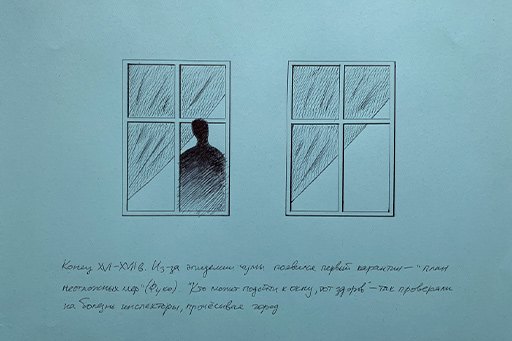 Конец XVI–XVII в. Из-за эпидемии чумы появился первый карантин – "план
неотложных мер" (Фуко). "Кто может подойти к окну, тот здоров" – так проверяли
на болезнь инспекторы, прочёсывая город